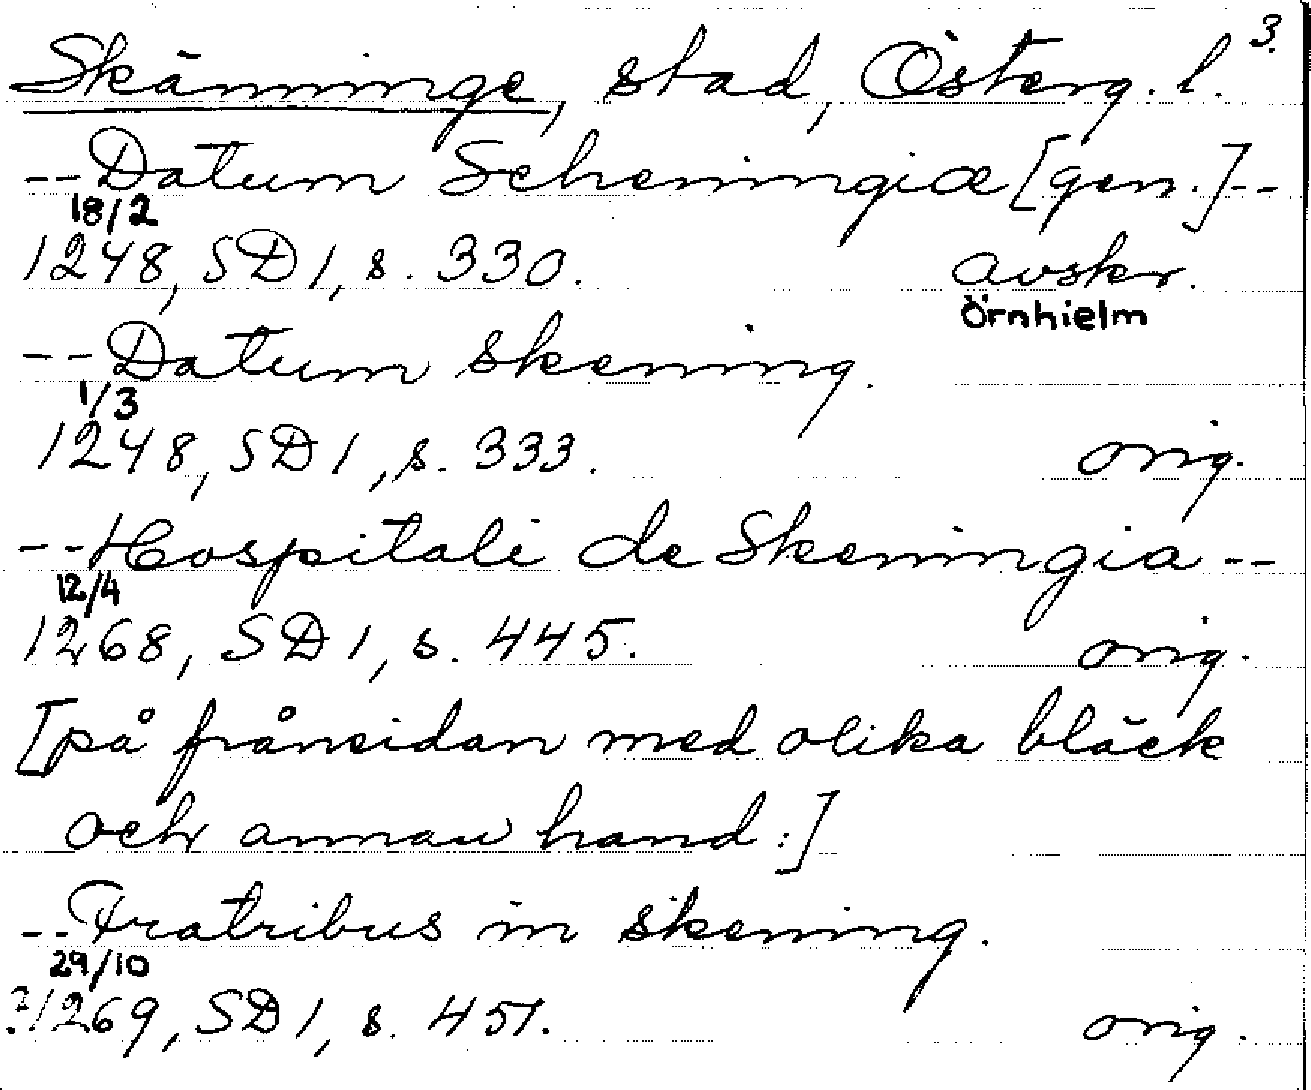 3.
Skänninge, stad, Österg. l.
-- Datum Scheningiæ [gen.] --
18/2
1248, SD 1, s. 330. avskr.
Örnhielm
-- Datum skening.
1/3
1248, SD 1, s. 333. orig.
-- Hospitali de Skeningia --
12/4
1268, SD 1, s. 445. orig.
[på frånsidan med olika bläck
och annan hand:]
-- Fratribus in skening.
29/10
?1269, SD 1, s. 451. orig.